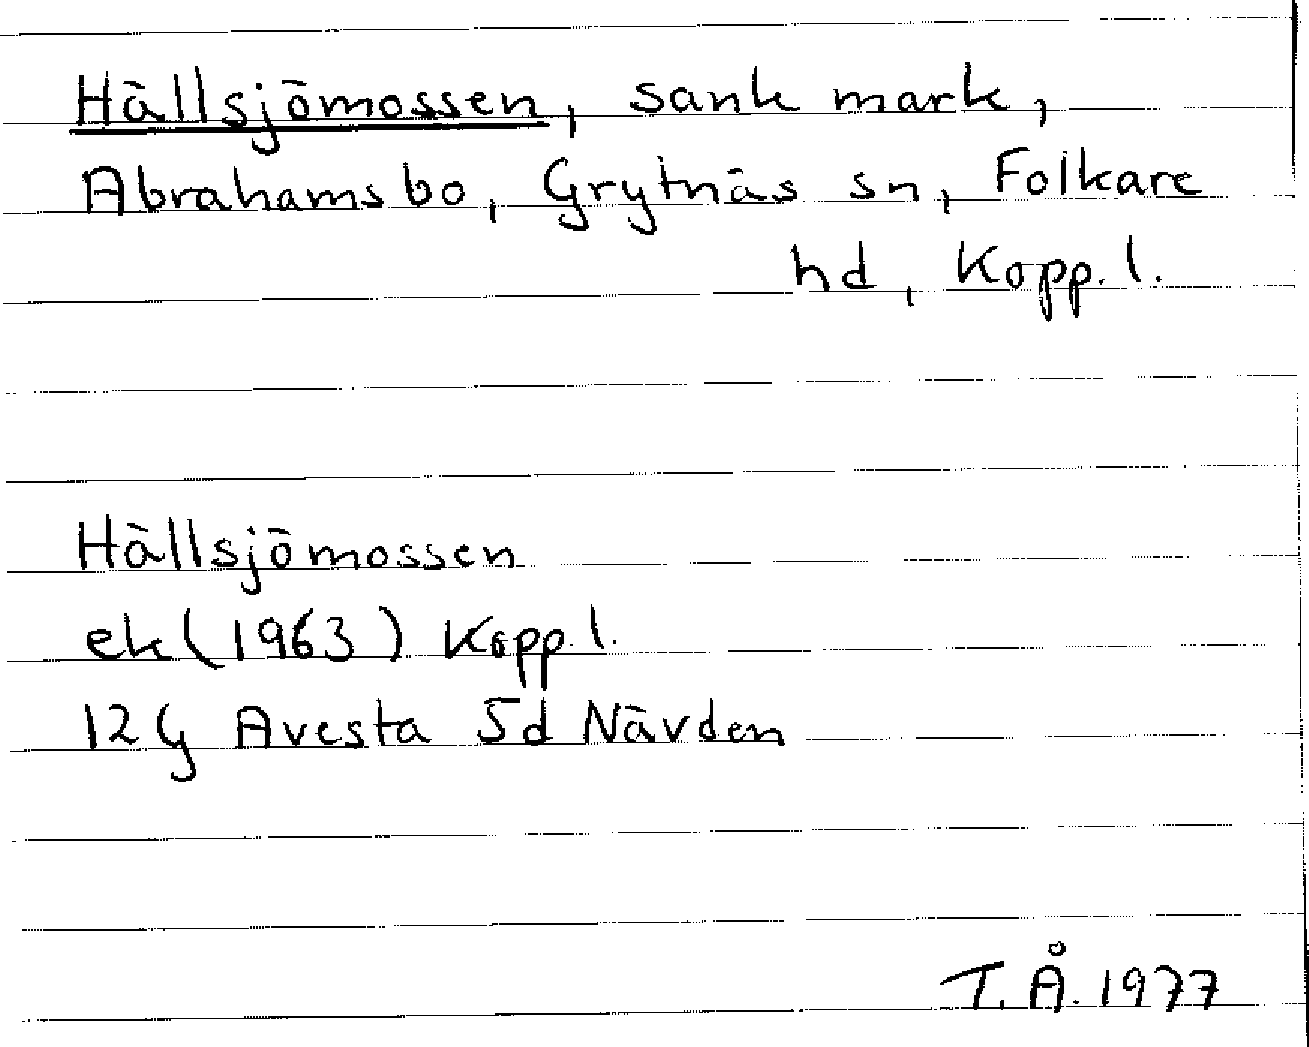 Hällsjömossen, sank mark,
Abrahamsbo, Grytnäs sn, Folkare
hd, Kopp. l.
Hällsjömossen
ek (1963) Kopp. l.
12 G Avesta 5d Nävden
T. Å. 1977